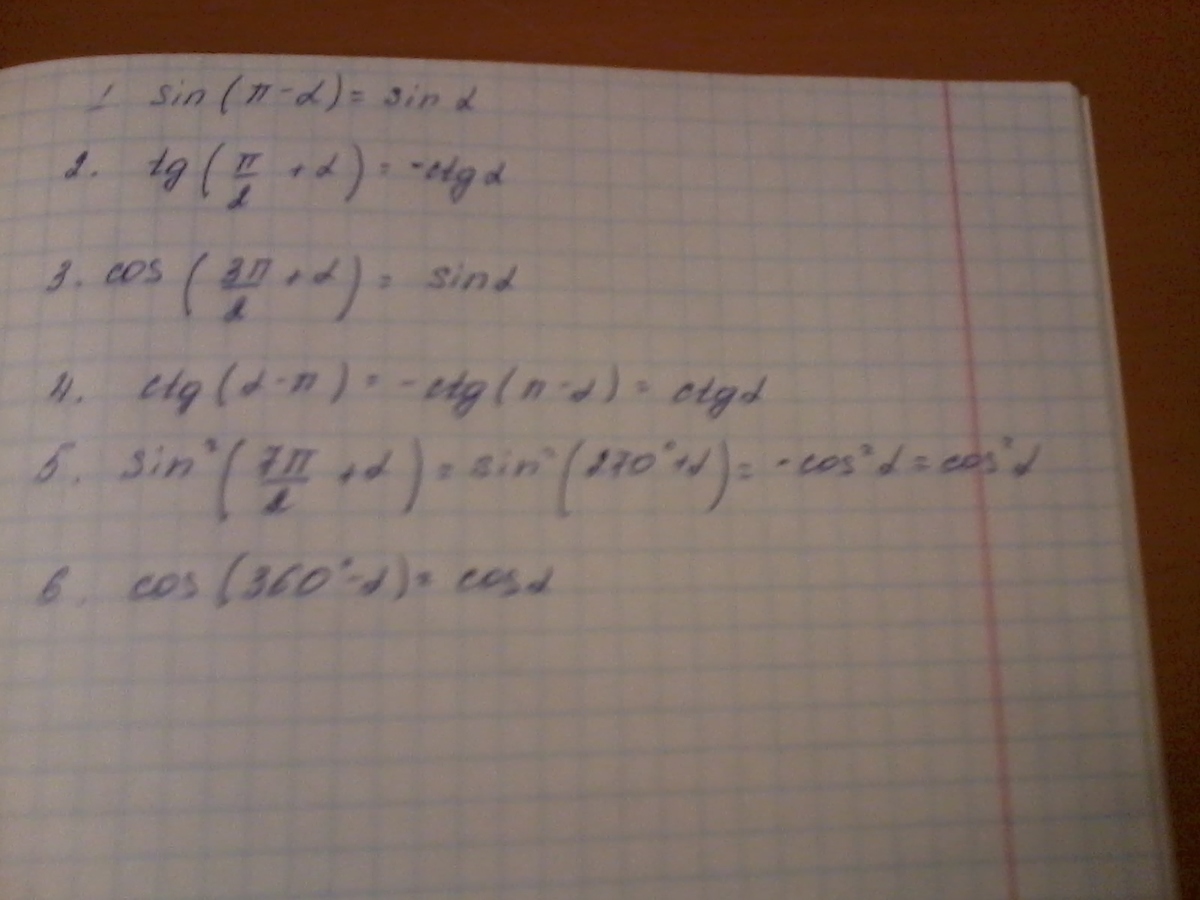 1 sin(π-α)= sin α
2. tg(π/2 +α)= -ctg α
3. cos(3π/2 +α)= sin α
4. ctg(α-π)= -ctg(π-α)= ctg α
5. sin²(7π/2 +α)= sin²(270°+α)= -cos²α = cos²α
6. cos(360°-α)= cos α